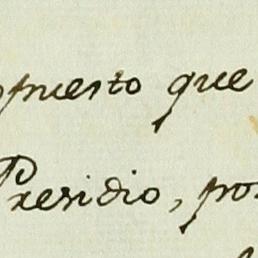 puesto que
Presidio, po